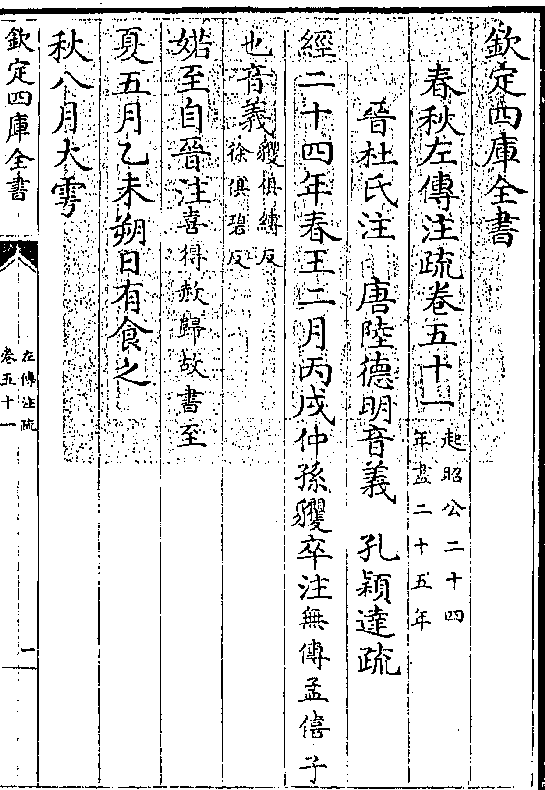 欽定四庫全書
春秋左傳注疏卷五十一起昭公二十四
年盡二十五年
晉杜氏注 唐陸德明音義 孔穎達疏
經二十四年春王二月丙戌仲孫貜卒注無傳孟僖子
也音義貜俱縛反
徐俱碧反
婼至自晉注喜得赦歸故書至
夏五月乙未朔日有食之
秋八月大雩
欽定四庫全書
左傳注疏
卷五十一
一